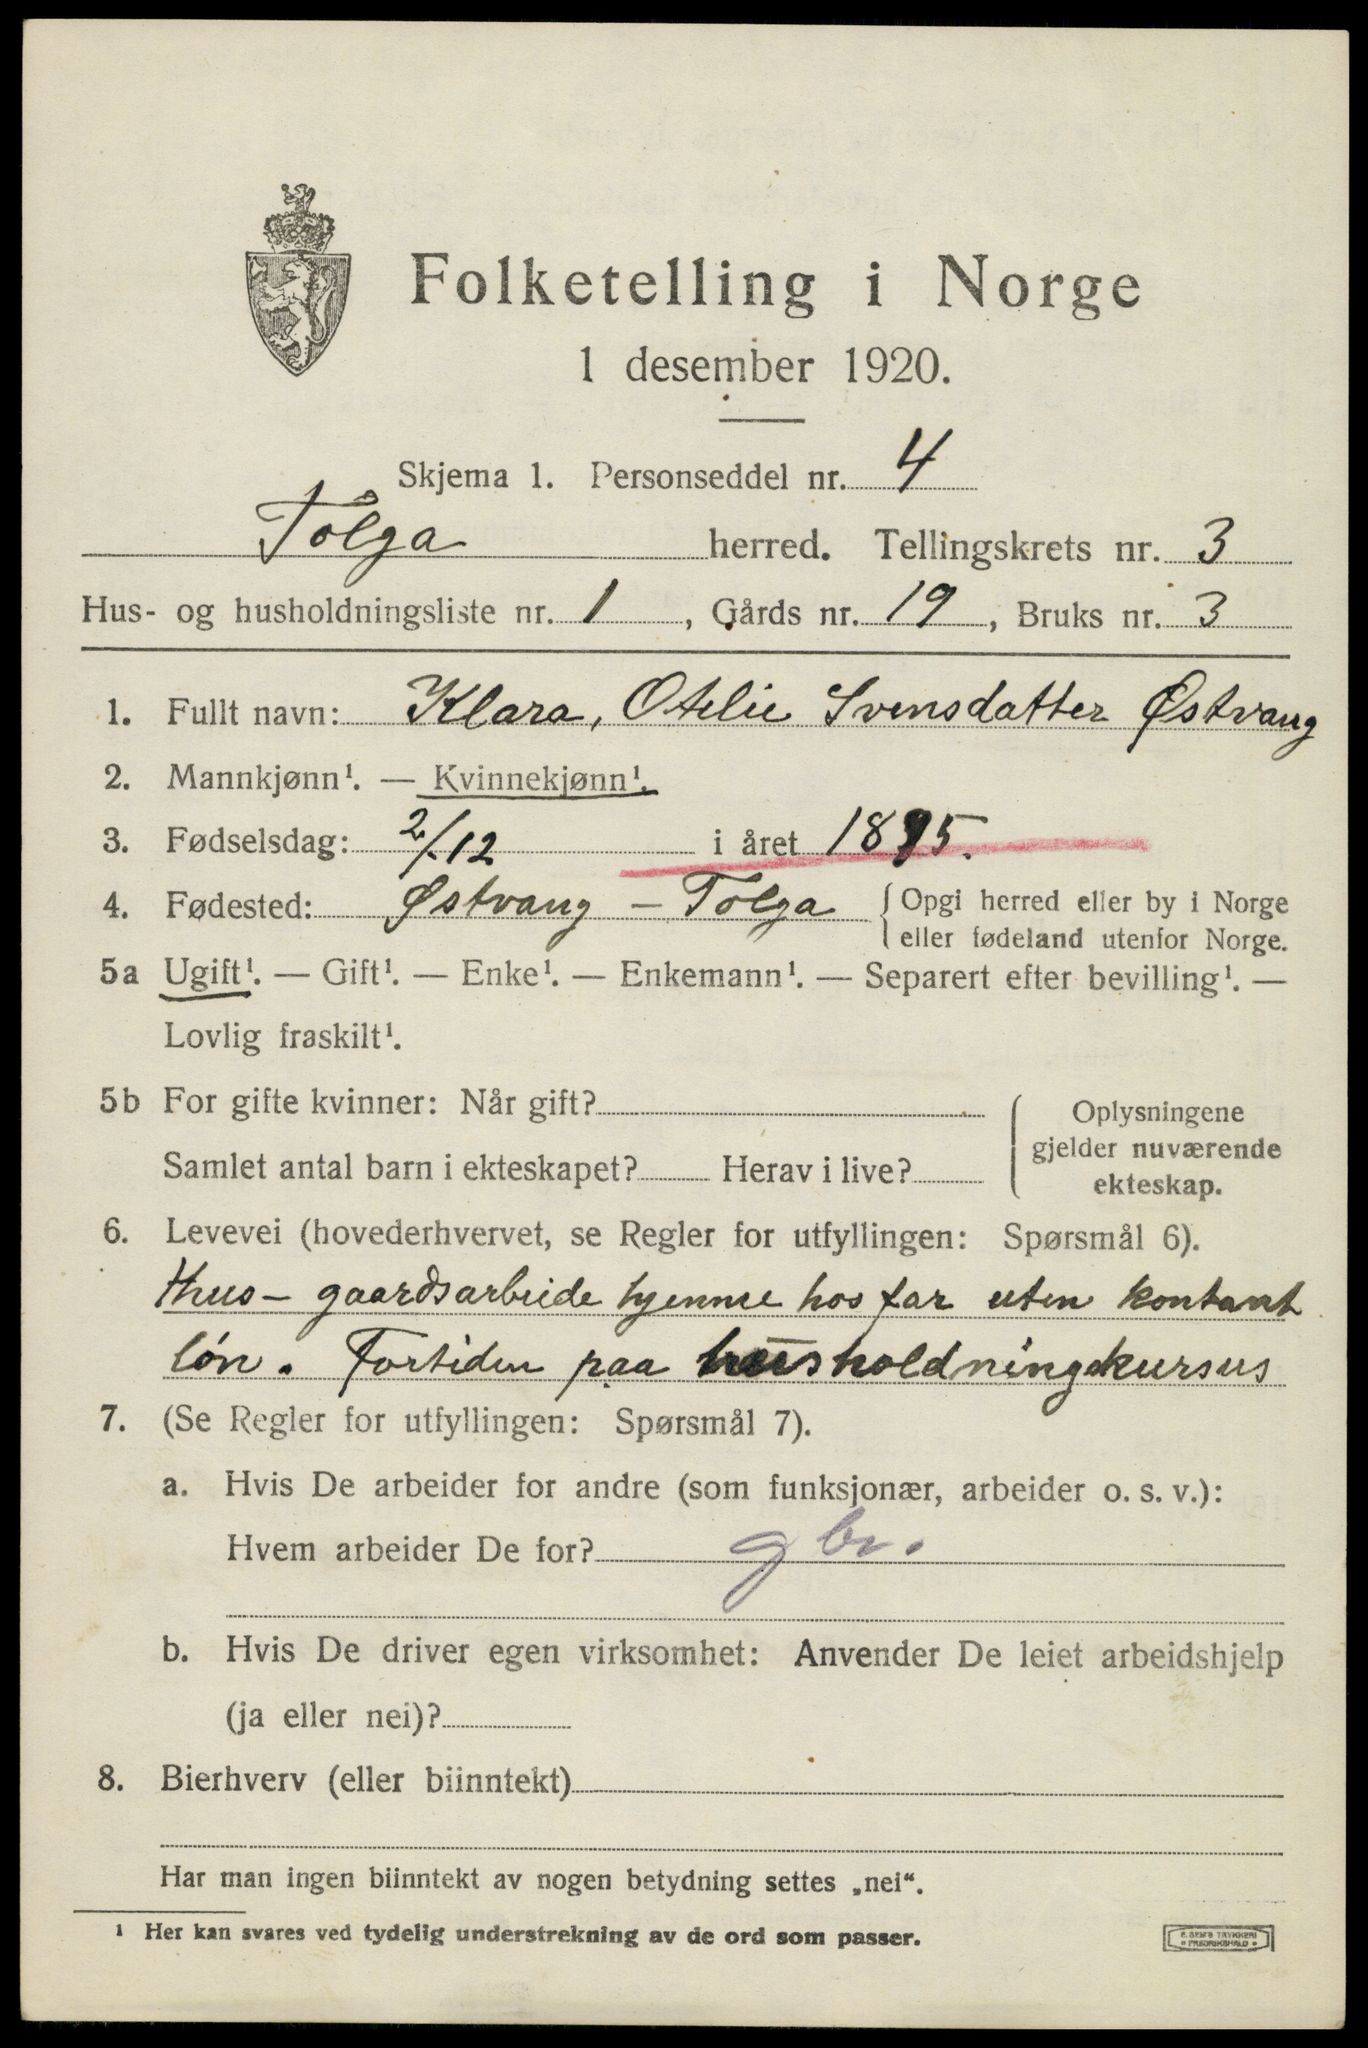 Folketelling i Norge
1 desember 1920.
Skjema 1. Personseddel nr. 4
Tolga herred. Tellingskrets nr. 3
Hus- og husholdningsliste nr. 1, Gårds nr. 19, Bruks nr. 3
1. Fullt navn: Klara, Otelie Svensdatter Østvang
2. Mannkjønn¹. — Kvinnekjønn¹.
3. Fødselsdag: 2/12 i året 1895.
4. Fødested: Østvang – Tolga { Opgi herred eller by i Norge
eller fødeland utenfor Norge.
5a Ugift¹. — Gift¹. — Enke¹. — Enkemann¹. — Separert efter bevilling¹. —
Lovlig fraskilt¹.
5b For gifte kvinner: Når gift?
Samlet antal barn i ekteskapet? Herav i live?
Oplysningene
gjelder nuværende
ekteskap.
6. Levevei (hovederhvervet, se Regler for utfyllingen: Spørsmål 6).
Hus- gaardsarbeide hjemme hos far uten kontant
løn. Fortiden paa husholdningskursus
7. (Se Regler for utfyllingen: Spørsmål 7).
a. Hvis De arbeider for andre (som funksjonær, arbeider o. s. v.):
Hvem arbeider De for? gbr.
b. Hvis De driver egen virksomhet: Anvender De leiet arbeidshjelp
(ja eller nei)?
8. Bierhverv (eller biinntekt)
Har man ingen biinntekt av nogen betydning settes „nei“.
¹ Her kan svares ved tydelig understrekning av de ord som passer.
E. SEM'S TRYKKERI
FREDRIKSHALD